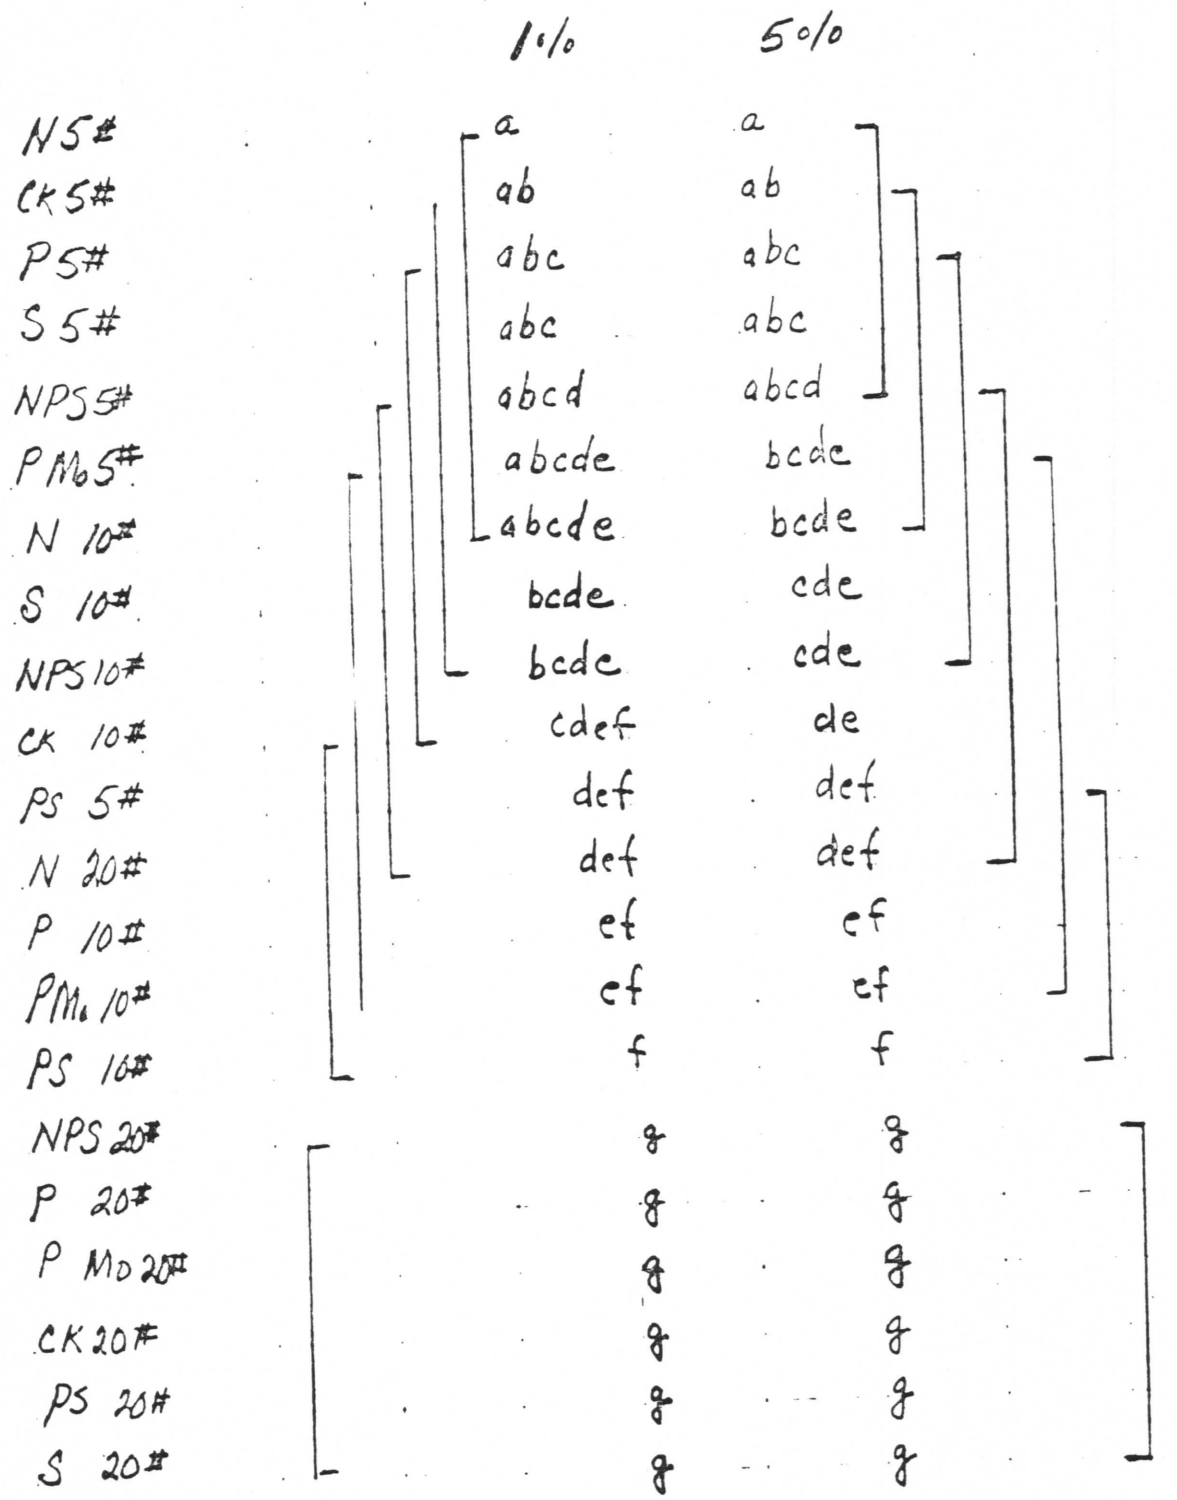 1% 5%
N5# a a
CK5# ab ab
P5# abc abc
S5# abc abc
NPS5# abcd abcd
PMo5# abcde bcde
N 10# abcde bcde
S 10# bcde cde
NPS10# bcde cde
CK 10# cdef de
PS 5# def def
N 20# def def
P 10# ef ef
PMo 10# ef ef
PS 10# f f
NPS20# g g
P 20# g g
P Mo 20# g g
CK20# g g
PS 20# g g
S 20# g g